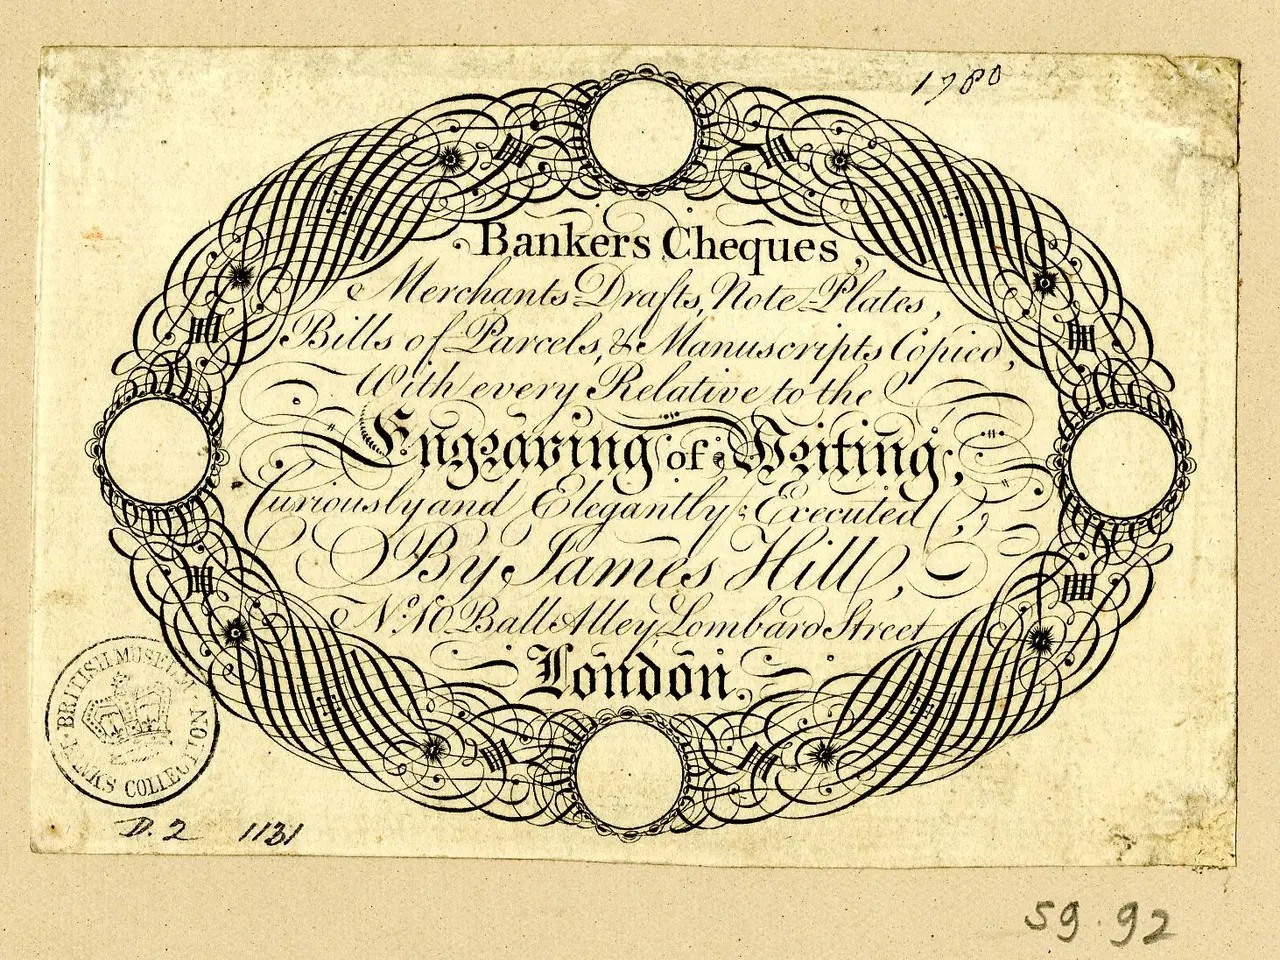 1780
Bankers Cheques,
Merchants Drafts, Note Plates,
Bills of Parcels, & Manuscripts Copied,
With every Relative to the
Engraving of Writing,
Curiously and Elegantly Executed
By James Hill,
No. 10 Ball Alley Lombard Street
London.
BRITISH MUSEUM
BANKS COLLECTION
D.2 1131
59.92